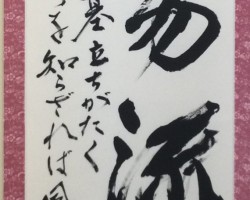 易流
基立ちがたく
を知らざれば風